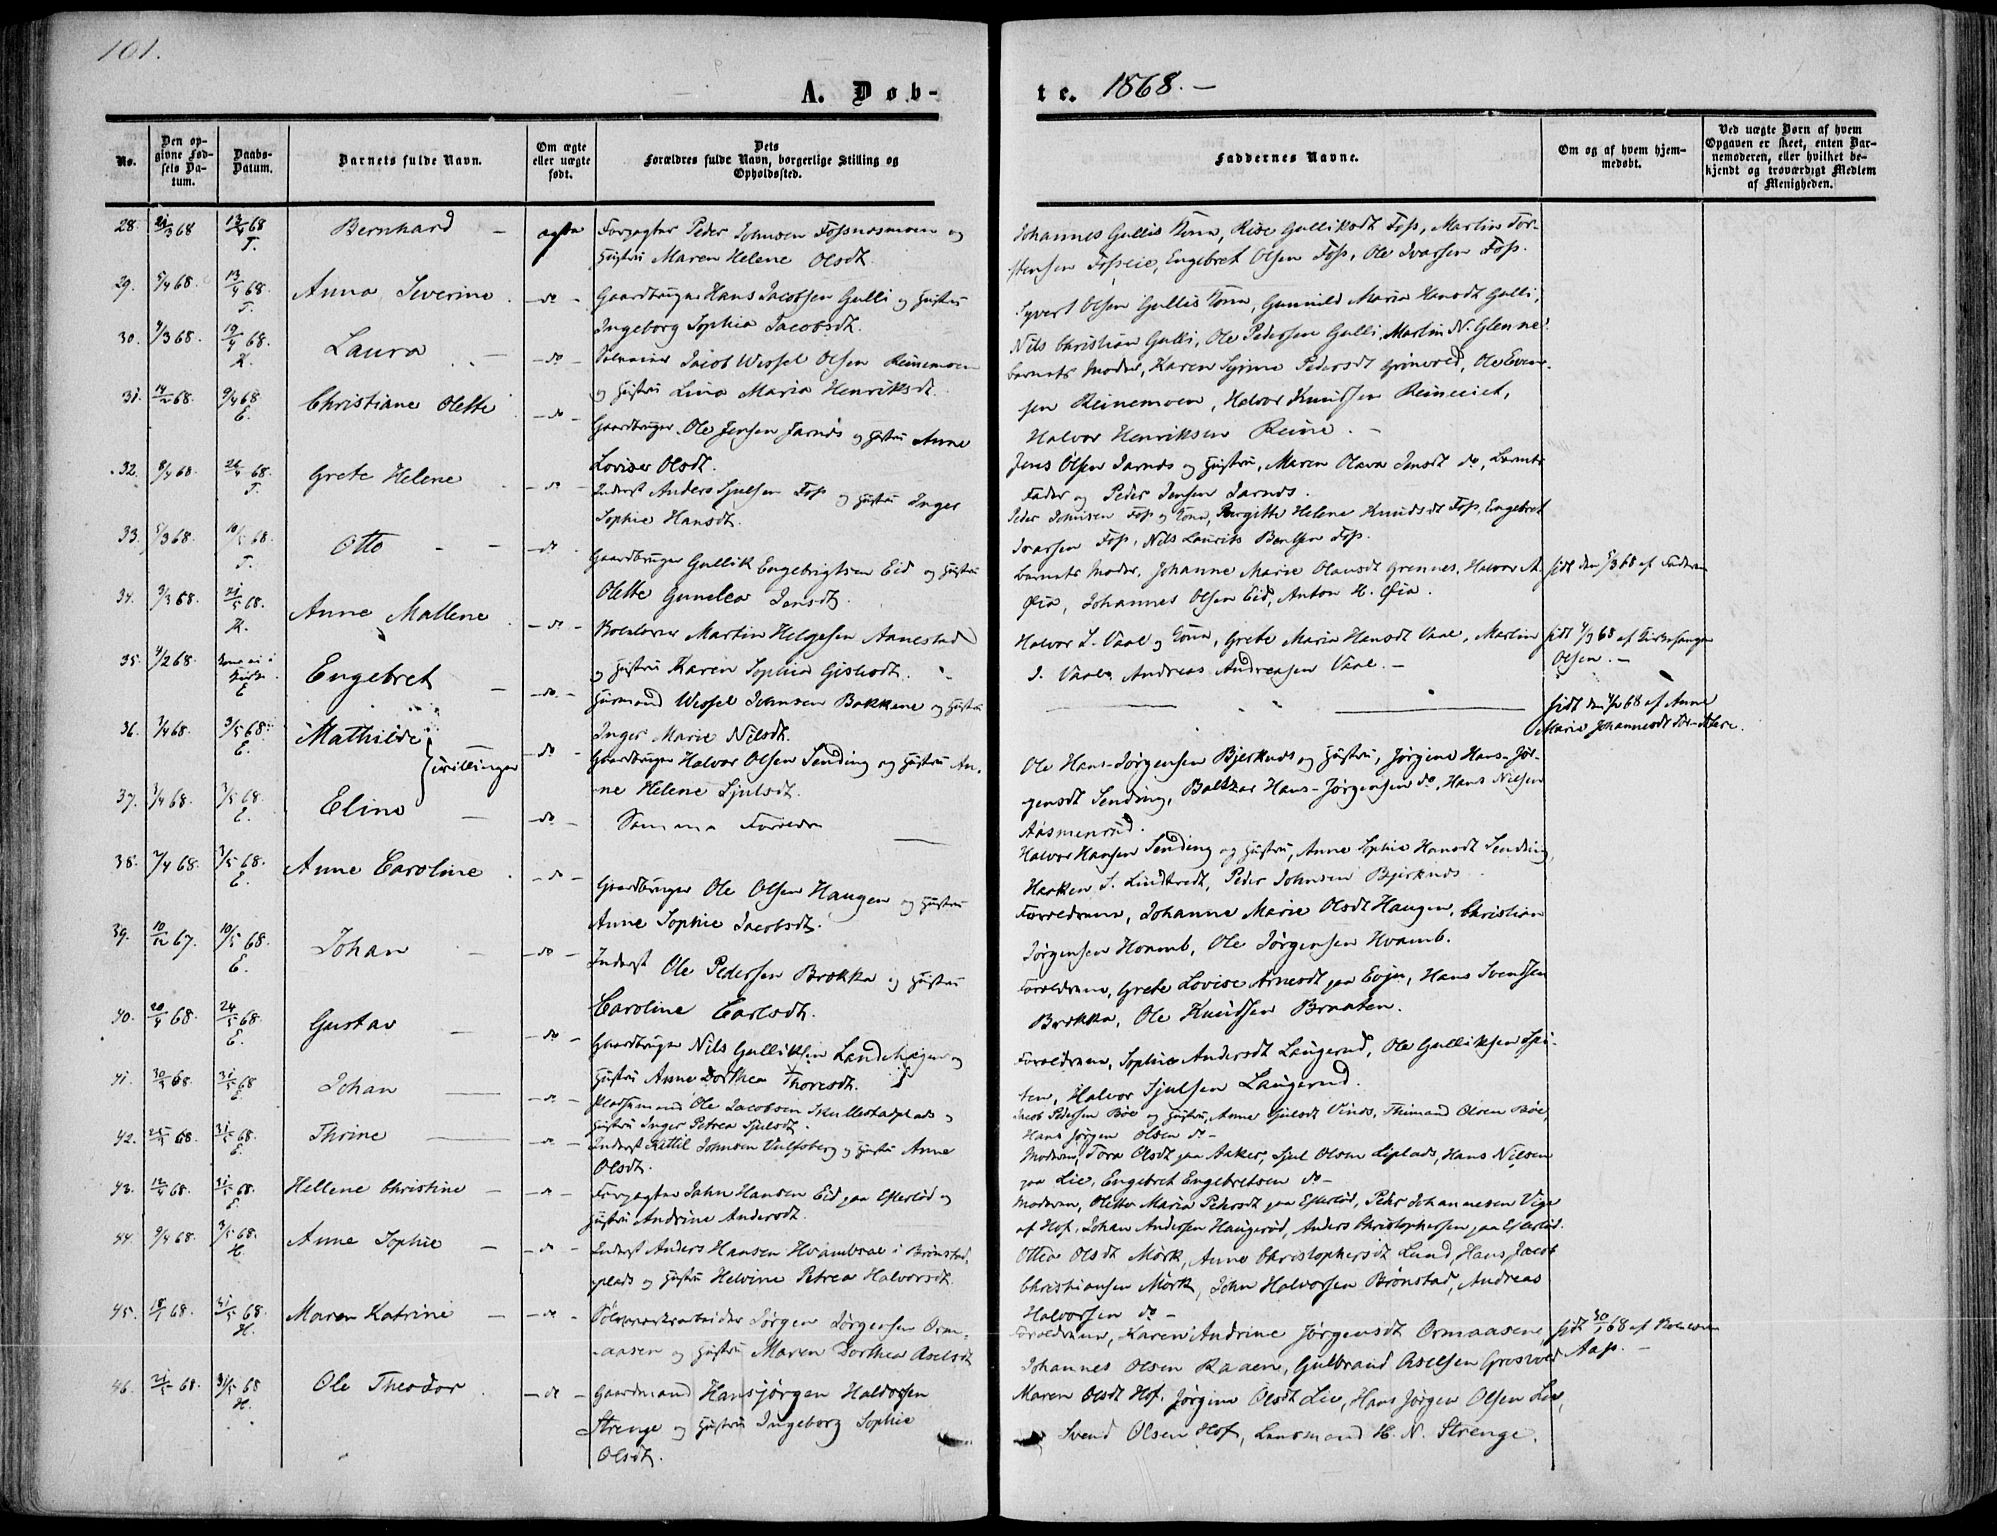 101.
A. Døb-
te. 1868. –
No.
Den op-
givne Fød-
sels Da-
tum.
Daabs-
Datum.
Barnets fulde Navn.
Om ægte
eller uægte
født.
Dets
Forældres fulde Navn, borgerlige Stilling og
Opholdssted.
Faddernes Navne.
Om og af hvem hjem-
medøbt.
Ved uægte Børn af hvem
Opgaven er skeet, enten Bar-
nemoderen, eller hvilket be-
kjendt og troværdigt Medlem
af Menigheden.
28. 21/3 68 13/4 68 Bernhard – ægte Forpagter Peder Johnsen Fossnæsmoen og
T. Hustru Maren Helene Olsdt.
29. 5/4 68. 13/4 68. Anna Severine – do – Gaardbruger Hans Jacobsen Gulli og Hustru
T. Ingeborg Sophia Jacobsdt.
30. 4/3 68. 19/4 68. Laura – – do – Jacob Wessel Olsen Reinemoen
K. og Hustru Lina Maria Henriksdt.
31. 14/2 68. 9/4 68 Christiane Olette – do – Gaardbruger Ole Jensen Jarnæs og Hustru Anne
E. Lovise Olsdt.
32. 8/3 68. 26/4 68. Grete Helene – do – Inderst Anders Sjulsen Foss og Hustru Inger
T. Sophie Hansdt.
33. 5/3 68. 10/5 68. Otto – – – do – Gaardbruger Gullik Engebrigtsen Eid og Hustru
T. Olette Gunelea Jensdt.
34. 3/3 68. 21/5 68. Anne Mallene – do – Martin Helgesen Aanestad
K. og Hustru Karen Sophia Gislesdt.
35. 4/2 68. Engebret – – do – Huusmand Wessel Johnsen Bakkene og Hustru
E Inger Marie Nilsdt.
36. 1/4 68. 3/5 68. Mathilde – do – Gaardbruger Halvor Olsen Sending og Hustru An-
E. ne Helene Sjulsdt.
tvillinger
37. 1/4 68. 3/5 68. Eline – – do – Samme Forældre
E.
38. 7/4 68. 3/5 68. Anne Caroline – do – Gaardbruger Ole Olsen Haugen og Hustru
E. Anne Sophie Jacobsdt.
39. 10/12 67. 10/5 68. Johan – – do – Inderst Ole Pedersen Brekka og Hustru
E. Caroline Carlsdt.
40. 20/4 68. 24/5 68. Gustav – – do – Gaardbruger Nils Gulliksen og
E. Hustru Anne Dorthea Thoresdt.
41. 30/3 68. 31/5 68 Johan – – do – Pladsemand Ole Jacobsen Skullestadplads og
E Hustru Inger Petrea Sjulsdt.
42. 25/4 68. 31/5 68. Thrine – – do – Inderst Kittil Johnsen Ulfsberg og Hustru Anne
E. Olsdt.
43. 12/4 68. 31/5 68. Hellene Christine – – do – Forpagter Jahn Hansen Eid paa Efteløt og
E. Hustru Andrine Andersdt.
44. 9/4 68. 3/5 68. Anne Sophie – – do – Inderst Anders Hansen Hvambsæ i Brønstad-
H. plads og Hustru Helvine Petrea Halvorsdt.
45. 18/1 68. 31/5 68. Maren Katrine – – do – Sølvværksarbeider Jørgen Jørgensen Orm-
H. aasen og Hustru Maren Dorthea Axelsdt
46. 21/5 68. 31/5 68 Ole Theodor – do – Gaardmand Hansjørgen Haldorsen
H. Strenge og Hustru Ingeborg Sophie
Olsdt.
Johannes Gullis Kona, Gulliksdt Foss, Martin Tor-
stensen Fosseie, Engebret Olsen Foss, Ole Ivarsen Foss.
Syvert Olsen Gullis Kona, Gunnild Maria Hansdt Gulli,
Nils Christian Gulli, Ole Pedersen Gulli, Martin N. Glenne.
Barnets Moder, Karen Pedersdt Grønvod, Ole Even-
sen Reinemoen, Halvor Knudsen Reineeiet,
Halvor Henriksen Reine. –
Jens Olsen Jarnæs og Hustru, Maren Olava Jensdt do, Barnets
Fader og Peder Jensen Jarnæs.
Peder Johnsen Foss og Kona, Birgitte Helene Knudsdt Foss, Engebret
Ivarsen Foss, Nils Laurits Bentsen Foss.
Barnets Moder, Johanne Marie Olausdt Grennes, Halvor A.
Øia, Johannes Olsen Eid, Anton H. Øia.
født den 5/3 68 af Faderen
Halvor S. Vaal og Kona, Grete Maria Hansdt Vaal, Martin
J. Vaal, Andreas Andreasen Vaal. –
født 4/3 68 af Kirkesanger
Olsen. –
født den 4/2 68 af Anne
Marie Johannesdt
Ole Hans-Jørgensen Bjerknæs og Hustru, Jørgine Hans-Jør-
gensdt Sending, Baltzar Hans-Jørgensen do, Hans Nielsen
Aasmenrud.
Halvor Hansen Sending og Hustru, Anne Sophie Hansdt Sending,
Haaken S. Lindtvedt, Peder Johnsen Bjerknæs.
Forældrene, Johanne Marie Olsdt Haugen, Christian
Jørgensen Hvamb, Ole Jørgensen Hvamb.
Forældrene, Grete Lovise Arnesdt paa Evju, Hans Svendsen
Brekka, Ole Knudsen Braaten.
Forældrene, Sophie Andersdt Laugerud, Ole Gulliksen Spi-
ten, Halvor Sjulsen Laugerud.
Jacob Pedersen Bøe og Hustru, Anne Sjulsdt Vinds, Thimand Olsen Bøe,
Hans Jørgen Olsen do –
Moderen, Tora Olsdt paa Aaker, Sjul Olsen Lieplads, Hans Nilsen
paa Lie, Engebret Engebretsen do –
Moderen, Olette Maria Pedersdt paa Efteløt, Peder Johannesen Vige
af Hof, Johan Andersen Haugerud, Anders Christophersen paa Efteløt.
Ottea Olsdt Mørk, Anne Christophersdt Lund, Hans Jacob
Christiansen Mørk, John Halvorsen Brønstad, Andreas
Halvorsen do –
Forældrene, Karen Andrine Jørgensdt Ormaasen,
Johannes Olsen Raaen, Gulbrand Axelsen Grosvold
født 30/1 68 af
Aass. –
Maren Olsdt Hof, Jørgine Olsdt Lie, Hans Jørgen Olsen Lie,
Svend Olsen Hof, Lensmand H. N. Strenge.